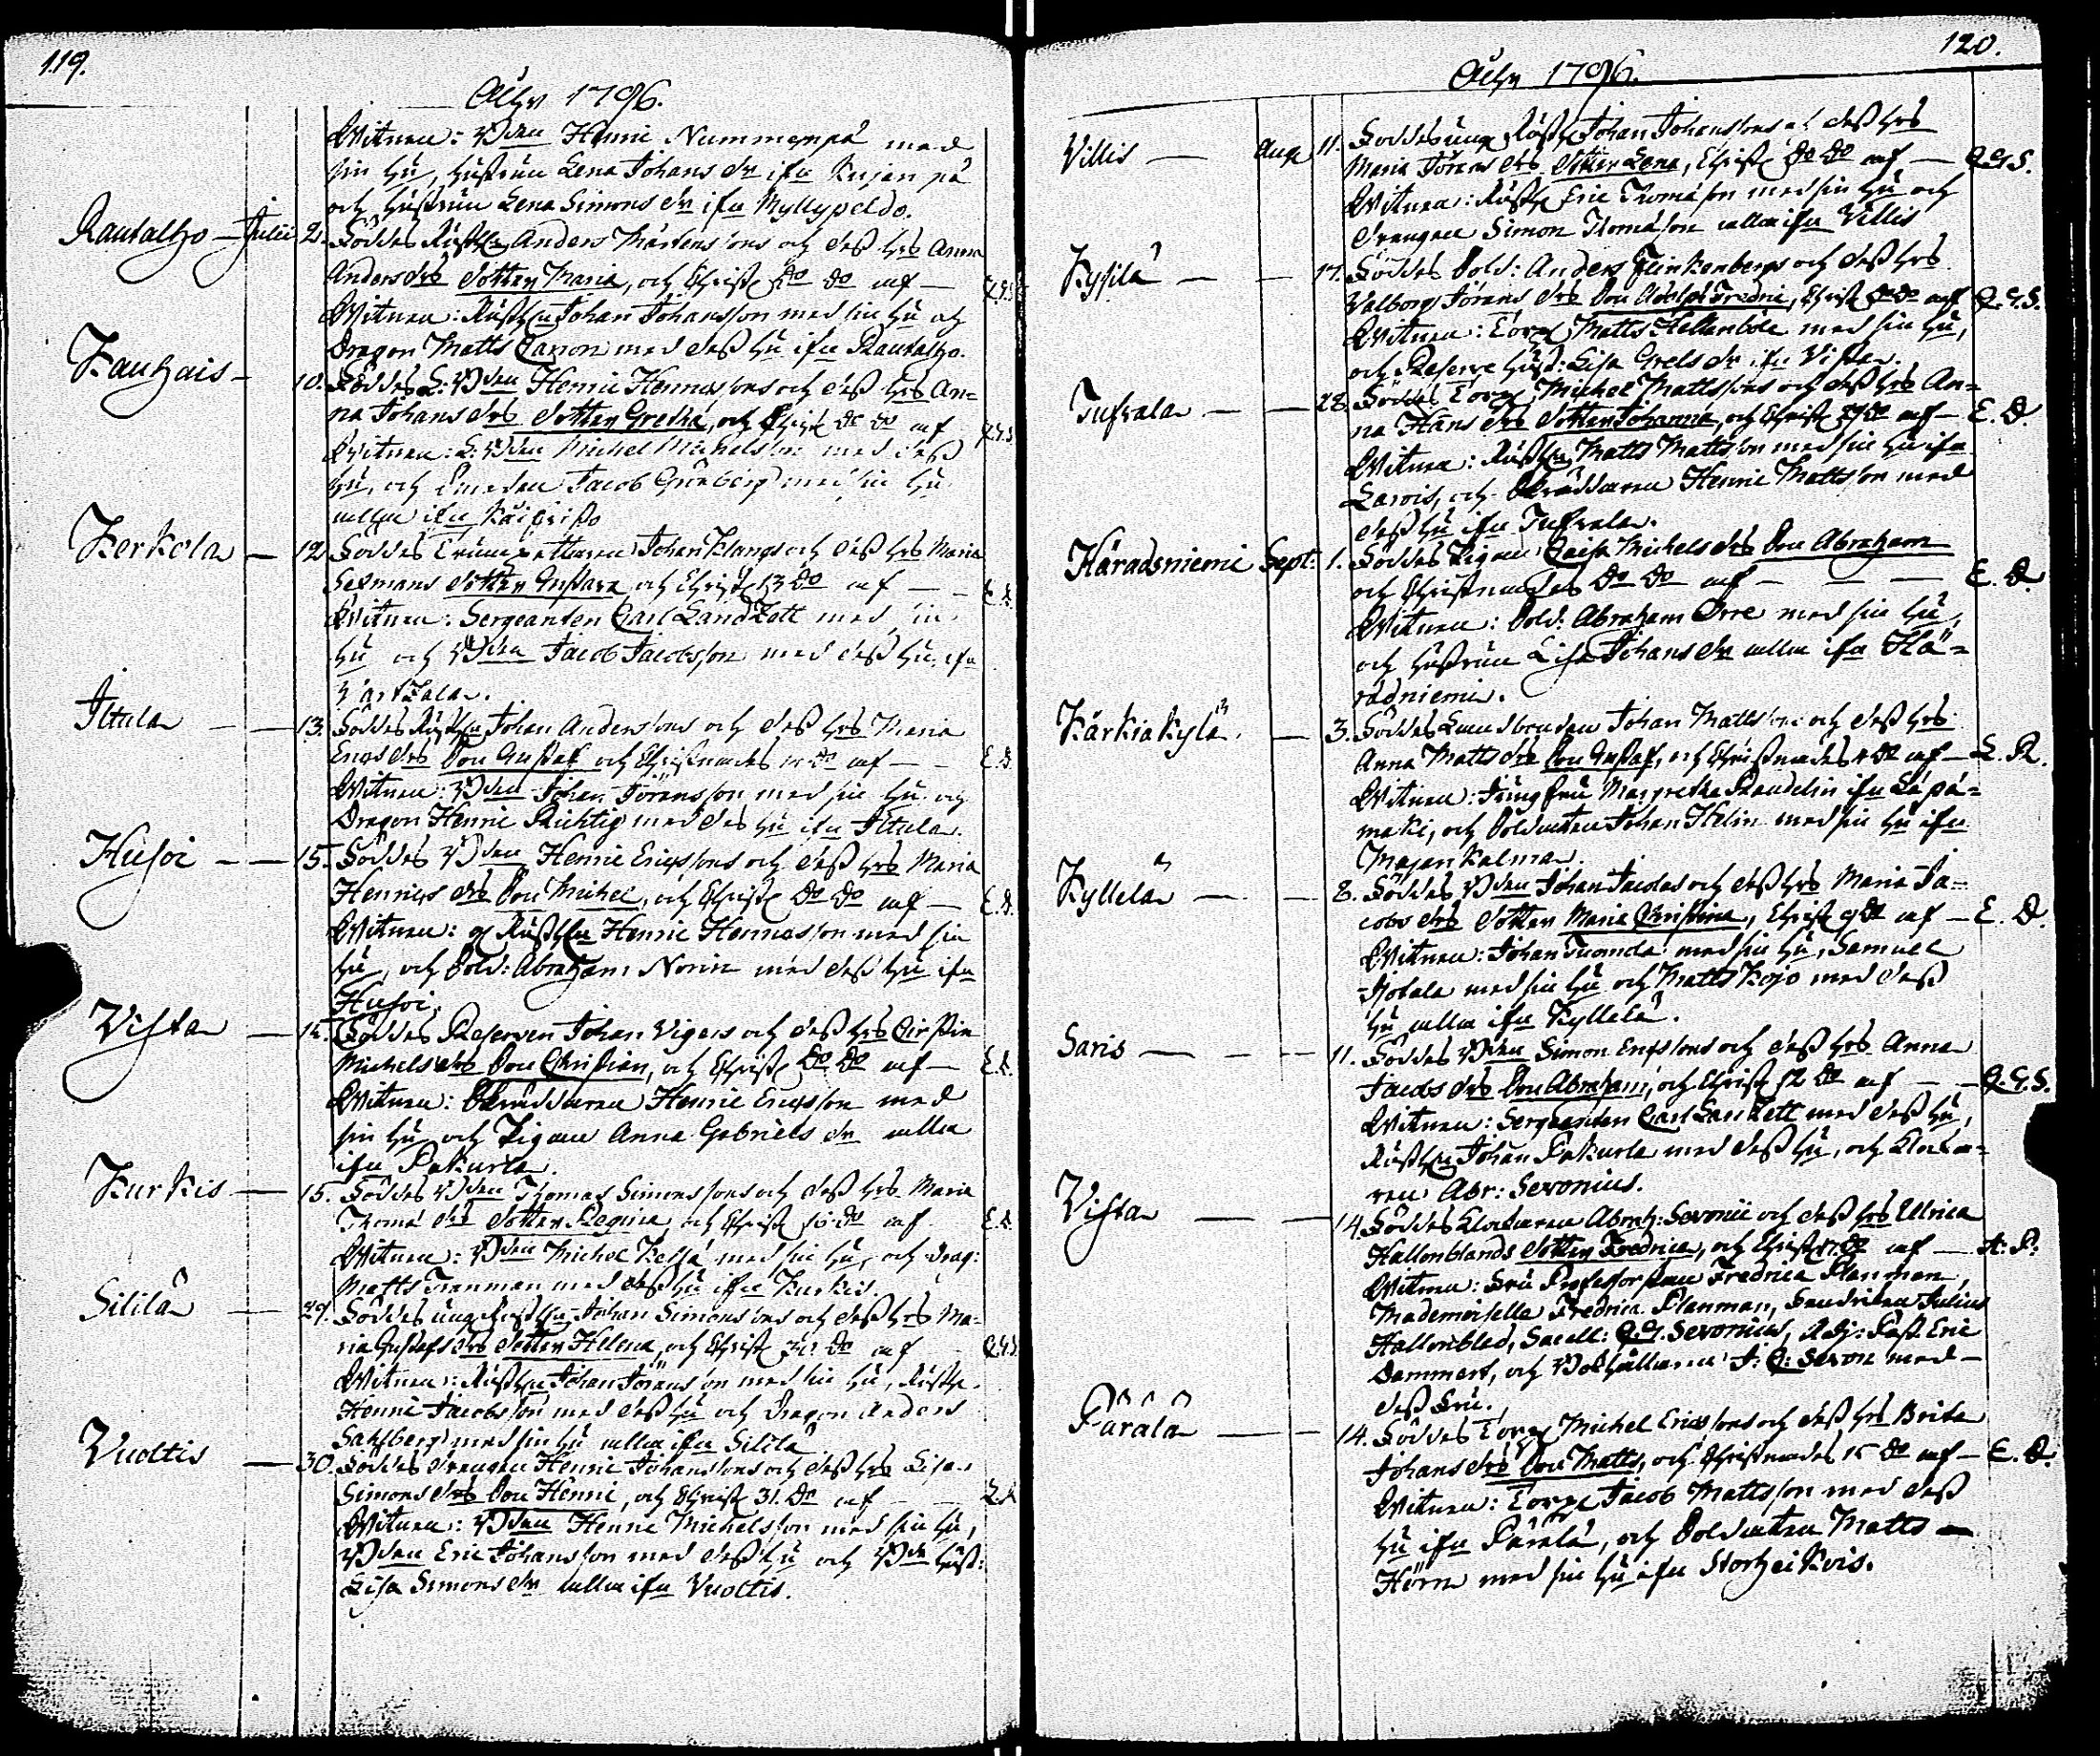 119.
Åhr 1796.
Witnen: Bden Henric Nummenpä med
sin hu, hustrun Lena Johans dr ifn Knjan pä
och hustrun Lena Simons dr ifn Myllypeldo.
Rautalho — Julii 2. Föddes Rusth. Anders Mårtenssons och dess hrs Anna
Anders drs dotter Maria, och Christ. do do af — Q.G.S.
Witnen: Rusth. Johan Johansson med sin hu och
Dragon Matts Carion med dess hu ifn Rautalho.
Kauhais — 10. Föddes L: Bden Henric Hennessons och dess hrs An=
na Johans drs dotter Gretha, och Christ. do do af Q.G.S.
Witnen: L: Bden Michel Michelsson med dess
hu, och Smeden Jacob Grönberg med sin hu
alla ifn
Kerkola — 12. Föddes Johan Klangs och dess hrs Maria
Sexmans dotter Gustava och Christ. 13 do af — E.D.
Witnen: Sergeanten Carl Landzett med sin
hu och Bden Jacob Jacobsson med dess hu ifn
Iltula — 13. Föddes Rusth. Johan Anderssons och dess hrs Maria
Erics drs Son Gustaf och Christnades do af — E.D.
Witnen: Bden Johan Jöransson med sin hu och
Dragon Henric Richtig med des hu ifn Iltula.
Husoi — 15. Föddes Bden Henric Ericssons och dess hrs Maria
Henrics drs Son Michel, och Christ. do do af — E.D.
Witnen: Rusth. Henric Hennesson med sin
hu, och Sold: Abraham Norin med dess hu ifn
Husoi.
Vista — 15. Föddes Reserven Johan Vigers och dess hrs Cirstin
Michels drs Son Christian, och Christ. do do af — E.D.
Witnen: Skräddaren Henric Ericsson med
sin hu och Pigan Anna Gabriels dr alla
ifn Pakurla.
Kurkis — 15. Föddes Bden Thomas Simonssons och dess hrs Maria
Thomæ drs dotter Regina, och Christ. 16 do af E.D.
Witnen: Bden Michel Keljä med sin hu, och Drag:
Matts Tranman med dess hu ifn Kurkis.
Sililä — 29. Föddes ung. Rusth. Johan Simonssons och dess hrs Ma=
ria Gustafs drs dotter Helena, och Christ. 30 do af Q.G.S.
Witnen: Rusth. Johan Jöransson med sin hu, Rusth.
Henric Jacobsson med dess hu och Dragon Anders
Sahlberg med sin hu alla ifn Sililä
Vuoltis — 30. Föddes drengen Henric Johanssons och dess hrs Lisa
Simons drs Son Henric, och Christ. 31. do af
Witnen: Bden Henric Michelsson med sin hu,
Bden Eric Johansson med dess hu och Bde hust:
Lisa Simons dr alla ifn Vuoltis.
120.
Åhr 1796.
Villis — Aug 11. Föddes ung. Rusth. Johan Johanssons och dess hrs
Maria Jörans drs dotter Lena, Christ. do do af — Q.G.S.
Witnen: Rusth. Eric Thomason med sin hu och
drengen Simon Thomason alla ifn Villis
Kysilä — 17. Föddes Sold: Anders Flinkenbergs och dess hrs
Valborg Jörans drs Son Adolph Fredric, Christ. do do af Q.G.S.
Witnen: Torp. Matts Hellenböle med sin hu,
och Reserve hust: Lisa Grels dr ifn Vista.
Tufvala — 28. Föddes Torp. Michel Mattssons och dess hrs An=
na Hans drs dotter Johanna, och Christ. 29 do af — E.D.
Witnen: Rusth. Matts Mattsson med sin hu ifn
Larvis, och Skräddaren Henric Mattsson med
dess hu ifn Tufvala.
Häradsniemi Sept: 1. Föddes Pigan Caisa Michels drs Son Abraham
och Christnades do do af — E.D.
Witnen: Sold: Abraham Orre med sin hu,
och hustrun Lisa Johans dr alla ifn Hä=
radniemi.
Kärkiäkylä — 3. Föddes Landbonden Johan Mattssons och dess hrs
Anna Matts drs Son Gustaf, och Christnades 4 do af —
Witnen: Jungfru Margretha Randelin ifn Läpä=
mäki, och Soldaten Johan Helin med sin hu ifn
Majankalma.
Kyllelä — 8. Föddes Bden Johan Jacobs och dess hrs Maria Ja=
cobs drs dotter Maria Christina, Christ. 9 do af — E.D.
Witnen: Johan Tuomola med sin hu, Samuel
Ijotala med sin hu och Matts Kojo med dess
hu alla ifn Kyllelä.
Saris — 11. Föddes Bden Simon Ericssons och dess hrs Anna
Jacobs drs Son Abraham, och Christ. 12 do af — Q.G.S.
Witnen: Sergeanten Carl Landzett med dess hu,
Rusth. Johan Pakurla med dess hu, och Klocka=
ren Abr: Sevonius.
Vista — 14. Föddes Klockaren Abrah: Sevonii och dess hrs Ulrica
Hallonblads dotter Fredrica, och Christ. 17. do af — A.P.
Witnen: Fru Professorskan Fredrica Planman,
Mademoiselle Fredrica Planman, Fendriken Julius
Hallonblad, Sacell: Q.G. Sevonius, Adj: Past. Eric
Dammert, och Bokhållaren J: Q: Sevon med
dess Fru.
Pärälä — 14. Föddes Torp. Michel Ericssons och dess hrs Brita
Johans drs Son Matts, och Christnades 15 do af — E.D.
Witnen: Torp. Jacob Mattsson med dess
hu ifn Pärälä, och Soldaten Matts
Hörn med sin hu ifn Storheikois.